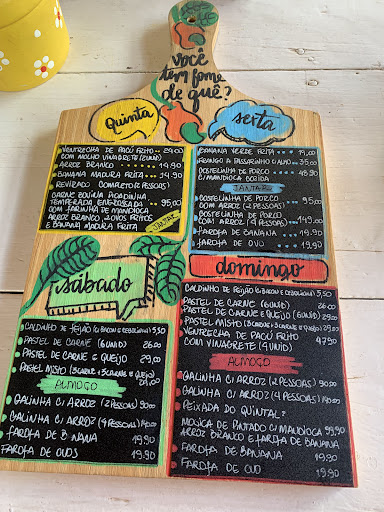 você
tem fome
de quê?
quinta
sexta
VENTRECHA DE PACÚ FRITO ... 29,00
COM MOLHO VINAGRETE (2UNID)
ARROZ BRANCO .... 19,90
BANANA MADURA FRITA .... 19,90
REVIRADO COMPLETO (2 PESSOAS)
CARNE BOVINA PICADINHA,
TEMPERADA, ENGROSSADA .. 95,00
COM FARINHA DE MANDIOCA
ARROZ BRANCO, 2 OVOS FRITOS
E BANANA MADURA FRITA
JANTAR
BANANA VERDE FRITA .... 19,00
FRANGO A PASSARINHO C/ ALHO .. 35,00
COSTELINHA DE PORCO .... 48,90
C/ MANDIOCA COZIDA
JANTAR
COSTELINHA DE PORCO
COM ARROZ (2 PESSOAS) .... 95,00
COSTELINHA DE PORCO
COM ARROZ (4 PESSOAS) .. 149,00
FAROFA DE BANANA .. 19,90
FAROFA DE OVO .... 19,90
sábado
CALDINHO DE FEIJÃO (C/ BACON E CEBOLINHA) 5,50
PASTEL DE CARNE (6 UNID) 26,00
PASTEL DE CARNE E QUEIJO 29,00
PASTEL MISTO (3 CARNE E 3 CARNE E QUEIJO)
29,00
ALMOÇO
GALINHA C/ ARROZ (2 PESSOAS) 90,00
GALINHA C/ ARROZ (4 PESSOAS) 140,00
FAROFA DE BANANA 19,90
FAROFA DE OVOS 19,90
domingo
CALDINHO DE FEIJÃO (C/ BACON E CEBOLINHA) 5,50
PASTEL DE CARNE (6 UNID) 26,00
PASTEL DE CARNE E QUEIJO (6 UNID) 29,00
PASTEL MISTO (3 CARNE E 3 CARNE E QUEIJO) 29,00
VENTRECHA DE PACÚ FRITO
COM VINAGRETE (4 UNID) 47,90
ALMOÇO
GALINHA C/ ARROZ (2 PESSOAS) 90,00
GALINHA C/ ARROZ (4 PESSOAS) 140,00
PEIXADA DO QUINTAL:
MOJICA DE PINTADO C/ MANDIOCA 99,90
ARROZ BRANCO E FAROFA DE BANANA
FAROFA DE BANANA 19,90
FAROFA DE OVO 19,90